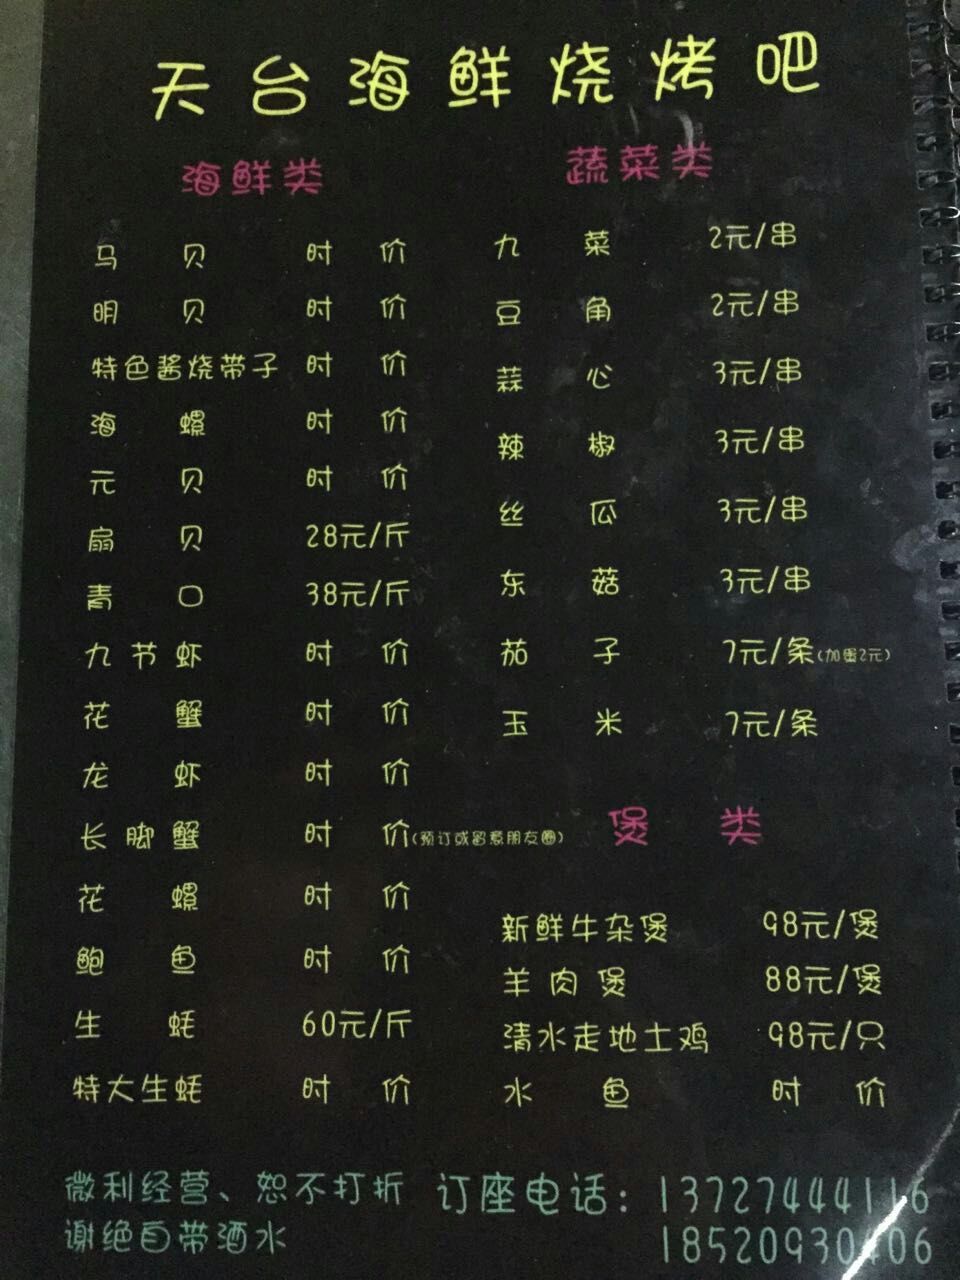 天台海鲜烧烤吧
海鲜类
马贝 时价
明贝 时价
特色酱烧带子 时价
海螺 时价
元贝 时价
扇贝 28元/斤
青口 38元/斤
九节虾 时价
花蟹 时价
龙虾 时价
长脚蟹 时价(预订或留意朋友圈)
花螺 时价
鲍鱼 时价
生蚝 60元/斤
特大生蚝 时价
蔬菜类
九菜 2元/串
豆角 2元/串
蒜心 3元/串
辣椒 3元/串
丝瓜 3元/串
东菇 3元/串
茄子 7元/条(加蛋2元)
玉米 7元/条
煲类
新鲜牛杂煲 98元/煲
羊肉煲 88元/煲
清水走地土鸡 98元/只
水鱼 时价
微利经营、恕不打折
谢绝自带酒水
订座电话：13727444116